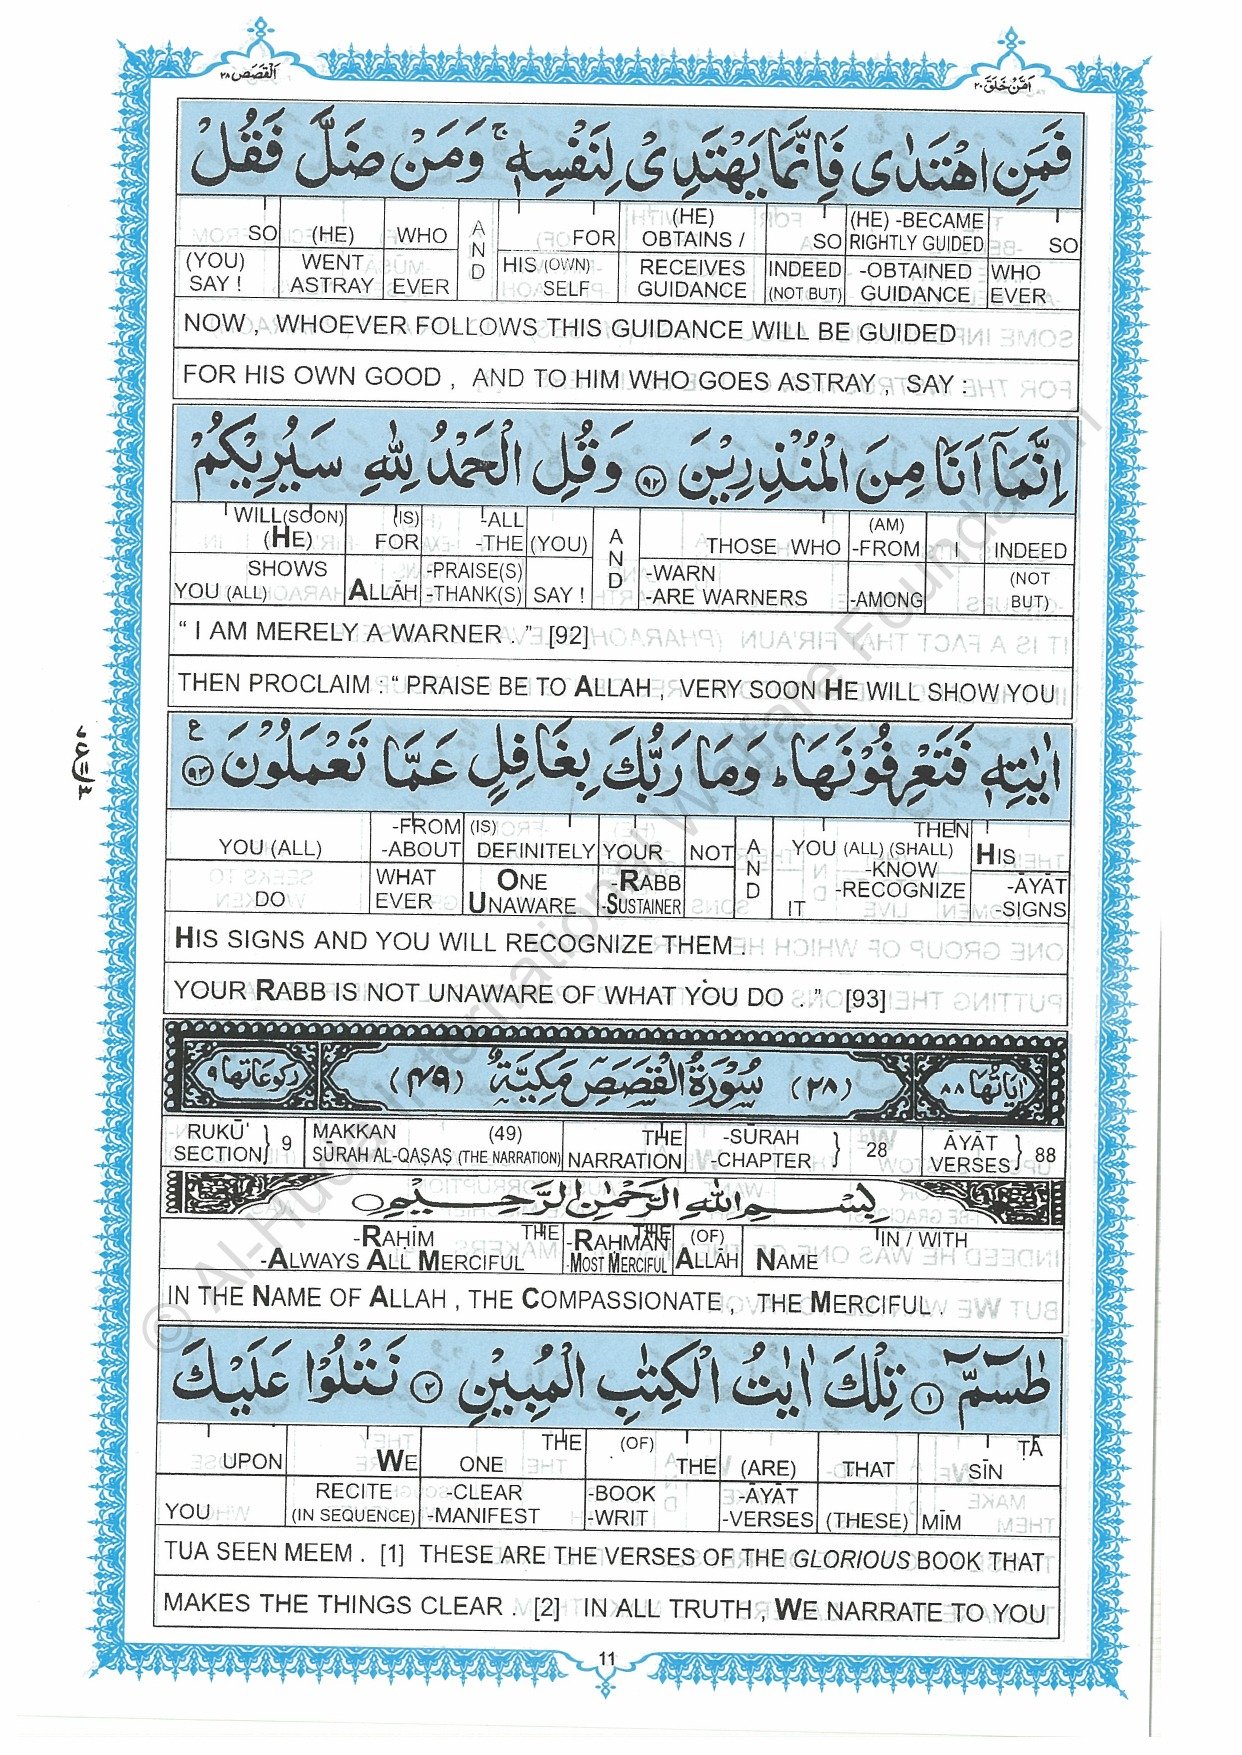 اَمَّنْ خَلَقَ ٢٠
اَلْقَصَص ٢٨
فَمَنِ اهْتَدٰى فَاِنَّمَا يَهْتَدِىْ لِنَفْسِهٖ ۚ وَمَنْ ضَلَّ فَقُلْ
SO (HE) WHO AND FOR (HE) OBTAINS / SO (HE) -BECAME RIGHTLY GUIDED SO
(YOU) SAY ! WENT ASTRAY EVER HIS (OWN) SELF RECEIVES GUIDANCE INDEED (NOT BUT) -OBTAINED GUIDANCE WHO EVER
NOW , WHOEVER FOLLOWS THIS GUIDANCE WILL BE GUIDED
FOR HIS OWN GOOD , AND TO HIM WHO GOES ASTRAY , SAY :
اِنَّمَآ اَنَا مِنَ الْمُنْذِرِيْنَ ٩٢ وَقُلِ الْحَمْدُ لِلّٰهِ سَيُرِيْكُمْ
WILL (SOON) (HE) (IS) FOR -ALL -THE (YOU) AND THOSE WHO (AM) -FROM I INDEED
SHOWS YOU (ALL) ALLĀH -PRAISE(S) -THANK(S) SAY ! -WARN -ARE WARNERS -AMONG (NOT BUT)
“ I AM MERELY A WARNER . ” [92]
THEN PROCLAIM : “ PRAISE BE TO ALLAH , VERY SOON HE WILL SHOW YOU
اٰيٰتِهٖ فَتَعْرِفُوْنَهَا ؕ وَمَا رَبُّكَ بِغَافِلٍ عَمَّا تَعْمَلُوْنَ ٩٣ ع
YOU (ALL) -FROM -ABOUT (IS) DEFINITELY YOUR NOT AND THEN YOU (ALL) (SHALL) HIS
DO WHAT EVER ONE UNAWARE -RABB -SUSTAINER -KNOW -RECOGNIZE IT -ĀYĀT -SIGNS
HIS SIGNS AND YOU WILL RECOGNIZE THEM .
YOUR RABB IS NOT UNAWARE OF WHAT YOU DO . ” [93]
اٰيَاتُهَا ٨٨ (٢٨) سُوْرَةُ الْقَصَصِ مَكِّيَّةٌ (٤٩) رُكُوْعَاتُهَا ٩
RUKŪ' SECTION } 9 MAKKAN (49) SŪRAH AL-QAṢAṢ (THE NARRATION) THE NARRATION -SŪRAH -CHAPTER } 28 ĀYĀT VERSES } 88
بِسْمِ اللّٰهِ الرَّحْمٰنِ الرَّحِيْمِ
-RAḤĪM THE -ALWAYS ALL MERCIFUL THE -RAHMĀN -MOST MERCIFUL (OF) ALLĀH IN / WITH NAME
IN THE NAME OF ALLAH , THE COMPASSIONATE , THE MERCIFUL .
طٰسٓمّٓ ١ تِلْكَ اٰيٰتُ الْكِتٰبِ الْمُبِيْنِ ٢ نَتْلُوْا عَلَيْكَ
UPON WE ONE THE (OF) THE (ARE) THAT ṬĀ SĪN
YOU RECITE (IN SEQUENCE) -CLEAR -MANIFEST -BOOK -WRIT -ĀYĀT -VERSES (THESE) MĪM
TUA SEEN MEEM . [1] THESE ARE THE VERSES OF THE GLORIOUS BOOK THAT
MAKES THE THINGS CLEAR . [2] IN ALL TRUTH , WE NARRATE TO YOU
11
© Al-Huda International Welfare Foundation